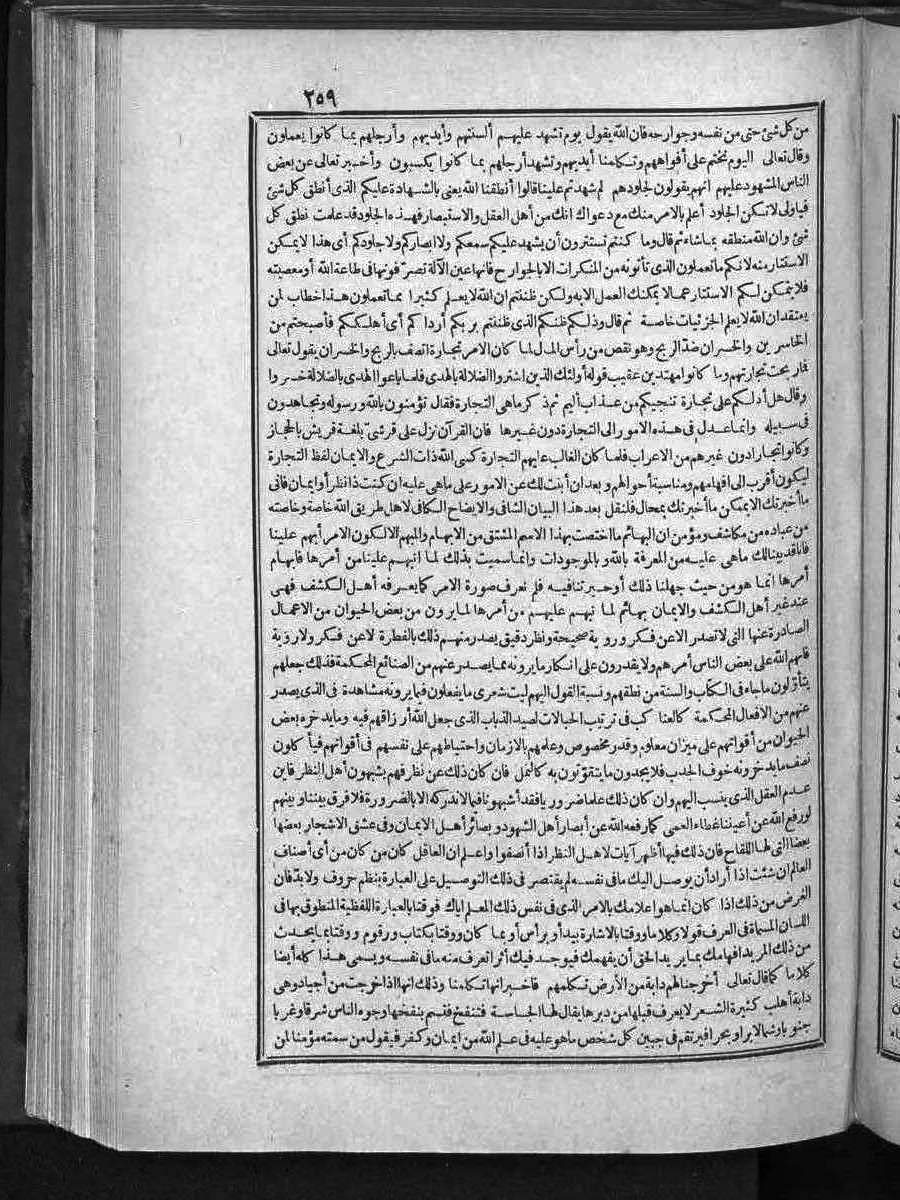 ٢٥٩
من كل شئ حتى من نفسه وجوارحه فان الله يقول يوم تشهد عليهم ألسنتهم وأيديهم وأرجلهم بما كانوا يعملون
وقال تعالى اليوم نختم على أفواههم وتكلمنا أيديهم وتشهد أرجلهم بما كانوا يكسبون وأخبر تعالى عن بعض
الناس المشهود عليهم انهم يقولون لجلودهم لم شهدتم علينا قالوا أنطقنا الله يعنى بالشهادة عليكم الذى أنطق كل شئ
فياولى لا تكن الجلود أعلم بالامر منك مع دعواك انك من أهل العقل والاستبصار فهذه الجلود قد علمت نطق كل
شئ وان الله منطقه بما شاء ثم قال وما كنتم تستترون أن يشهد عليكم سمعكم ولا ابصاركم ولا جلودكم أى هذا لا يمكن
الاستتار منه لانكم ما تعملون الذى تأتونه من المنكرات الا بالجوارح فانها عين الآلة تصرّفونها فى طاعة الله أو معصيته
فلا يتمكن لكم الاستتار عما لا يمكنك العمل الا به ولكن ظننتم ان الله لا يعلم كثيرا مما تعملون هذا خطاب لمن
يعتقد ان الله لا يعلم الجزئيات خاصة ثم قال وذلكم ظنكم الذى ظننتم بربكم أرداكم أى أهلككم فأصبحتم من
الخاسرين والخسران ضدّ الربح وهو نقص من رأس المال لما كان الامر تجارة اتصف بالربح والخسران يقول تعالى
فما ربحت تجارتهم وما كانوا مهتدين عقيب قوله أولئك الذين اشتروا الضلالة بالهدى فلما باعوا الهدى بالضلالة خسروا
وقال هل أدلكم على تجارة تنجيكم من عذاب أليم ثم ذكر ماهى التجارة فقال تؤمنون بالله ورسوله وتجاهدون
فى سبيله وانما عدل فى هذه الامور الى التجارة دون غيرها فان القرآن نزل على قرشىّ بلغة قريش بالحجاز
وكانوا تجارا دون غيرهم من الاعراب فلما كان الغالب عليهم التجارة كسى الله ذات الشرع والايمان لفظ التجارة
ليكون أقرب الى افهامهم ومناسبة أحوالهم وبعد ان أبنت لك عن الامور على ماهى عليه ان كنت ذا نظر أو ايمان فانى
ما أخبرتك الا بممكن ما أخبرتك بمحال فلنقل بعد هذا البيان الشافى والايضاح الكافى لاهل طريق الله خاصة وخاصته
من عباده من مكاشف ومؤمن ان البهائم ما اختصت بهذا الاسم المشتق من الابهام والمبهم الا لكون الامر أبهم علينا
فانا قد بينا لك ماهى عليه من المعرفة بالله وبالموجودات وانما سميت بذلك لما انبهم علينا من أمرها فابهام
أمرها انما هو من حيث جهلنا ذلك أو حيرتنا فيه فلم نعرف صورة الامر كما يعرفه أهل الكشف فهى
عند غير أهل الكشف والايمان بهائم لما نبهم عليهم من أمرها لما يرون من بعض الحيوان من الاعمال
الصادرة عنها التى لا تصدر الا عن فكر وروية صحيحة ونظر دقيق يصدر منهم ذلك بالفطرة لا عن فكر ولا روية
فابهم الله على بعض الناس أمرهم ولا يقدرون على انكار ما يرونه مما يصدر عنهم من الصنائع المحكمة فذلك جعلهم
يتأوّلون ما جاء فى الكتاب والسنة من نطقهم ونسبة القول اليهم ليت شعرى ما يفعلون فيما يرونه مشاهدة فى الذى يصدر
عنهم من الافعال المحكمة كالعناكب فى ترتيب الحبالات لصيد الذباب الذى جعل الله أرزاقهم فيه وما يدخره بعض
الحيوان من أقواتهم على ميزان معلوم وقدر مخصوص وعلمهم بالازمان واحتياطهم على نفسهم فى أقواتهم فيأكلون
نصف ما يدخرونه خوف الجدب فلا يجدون ما يتقوّتون به كالنمل فان كان ذلك عن نظر فهم يشبهون أهل النظر فاين
عدم العقل الذى ينسب اليهم وان كان ذلك علما ضروريا فقد أشبهونا فيما لا ندركه الا بالضرورة فلا فرق بيننا وبينهم
لو رفع الله عن أعيننا غطاء العمى كما رفعه الله عن أبصار أهل الشهود وبصائر أهل الايمان وفى عشق الاشجار بعضها
بعضا التى لها اللقاح فان ذلك فيها أظهر آيات لاهل النظر اذا أنصفوا واعلم ان العاقل كان من كان من أى أصناف
العالم ان شئت اذا أراد أن يوصل اليك ما فى نفسه لم يقتصر فى ذلك التوصيل على العبارة بنظم حروف ولا بدّ فان
الغرض من ذلك اذا كان انما هو اعلامك بالامر الذى فى نفس ذلك المعلم اياك فوقتا بالعبارة اللفظية المنطوق بها فى
اللسان المسماة فى العرف قولا وكلاما ووقتا بالاشارة بيد أو برأس أو بما كان ووقتا بكتاب ورقوم ووقتا بما يحدث
من ذلك المريد افهامك بما يريد الحق أن يفهمك فيوجد فيك أثرا تعرف منه ما فى نفسه ويسمى هذا كله أيضا
كلاما كما قال تعالى أخرجنا لهم دابة من الأرض تكلمهم فاخبر انها تكلمنا وذلك انها اذا خرجت من أجياد وهى
دابة أهلب كثيرة الشعر لا يعرف قبلها من دبرها يقال لها الجساسة فتنفخ فتسم بنفخها وجوه الناس شرقا وغربا
جنوبا وشمالا برا وبحرا فيرتقم فى جبين كل شخص ما هو عليه فى علم الله من ايمان وكفر فيقول من سمته مؤمنا لمن